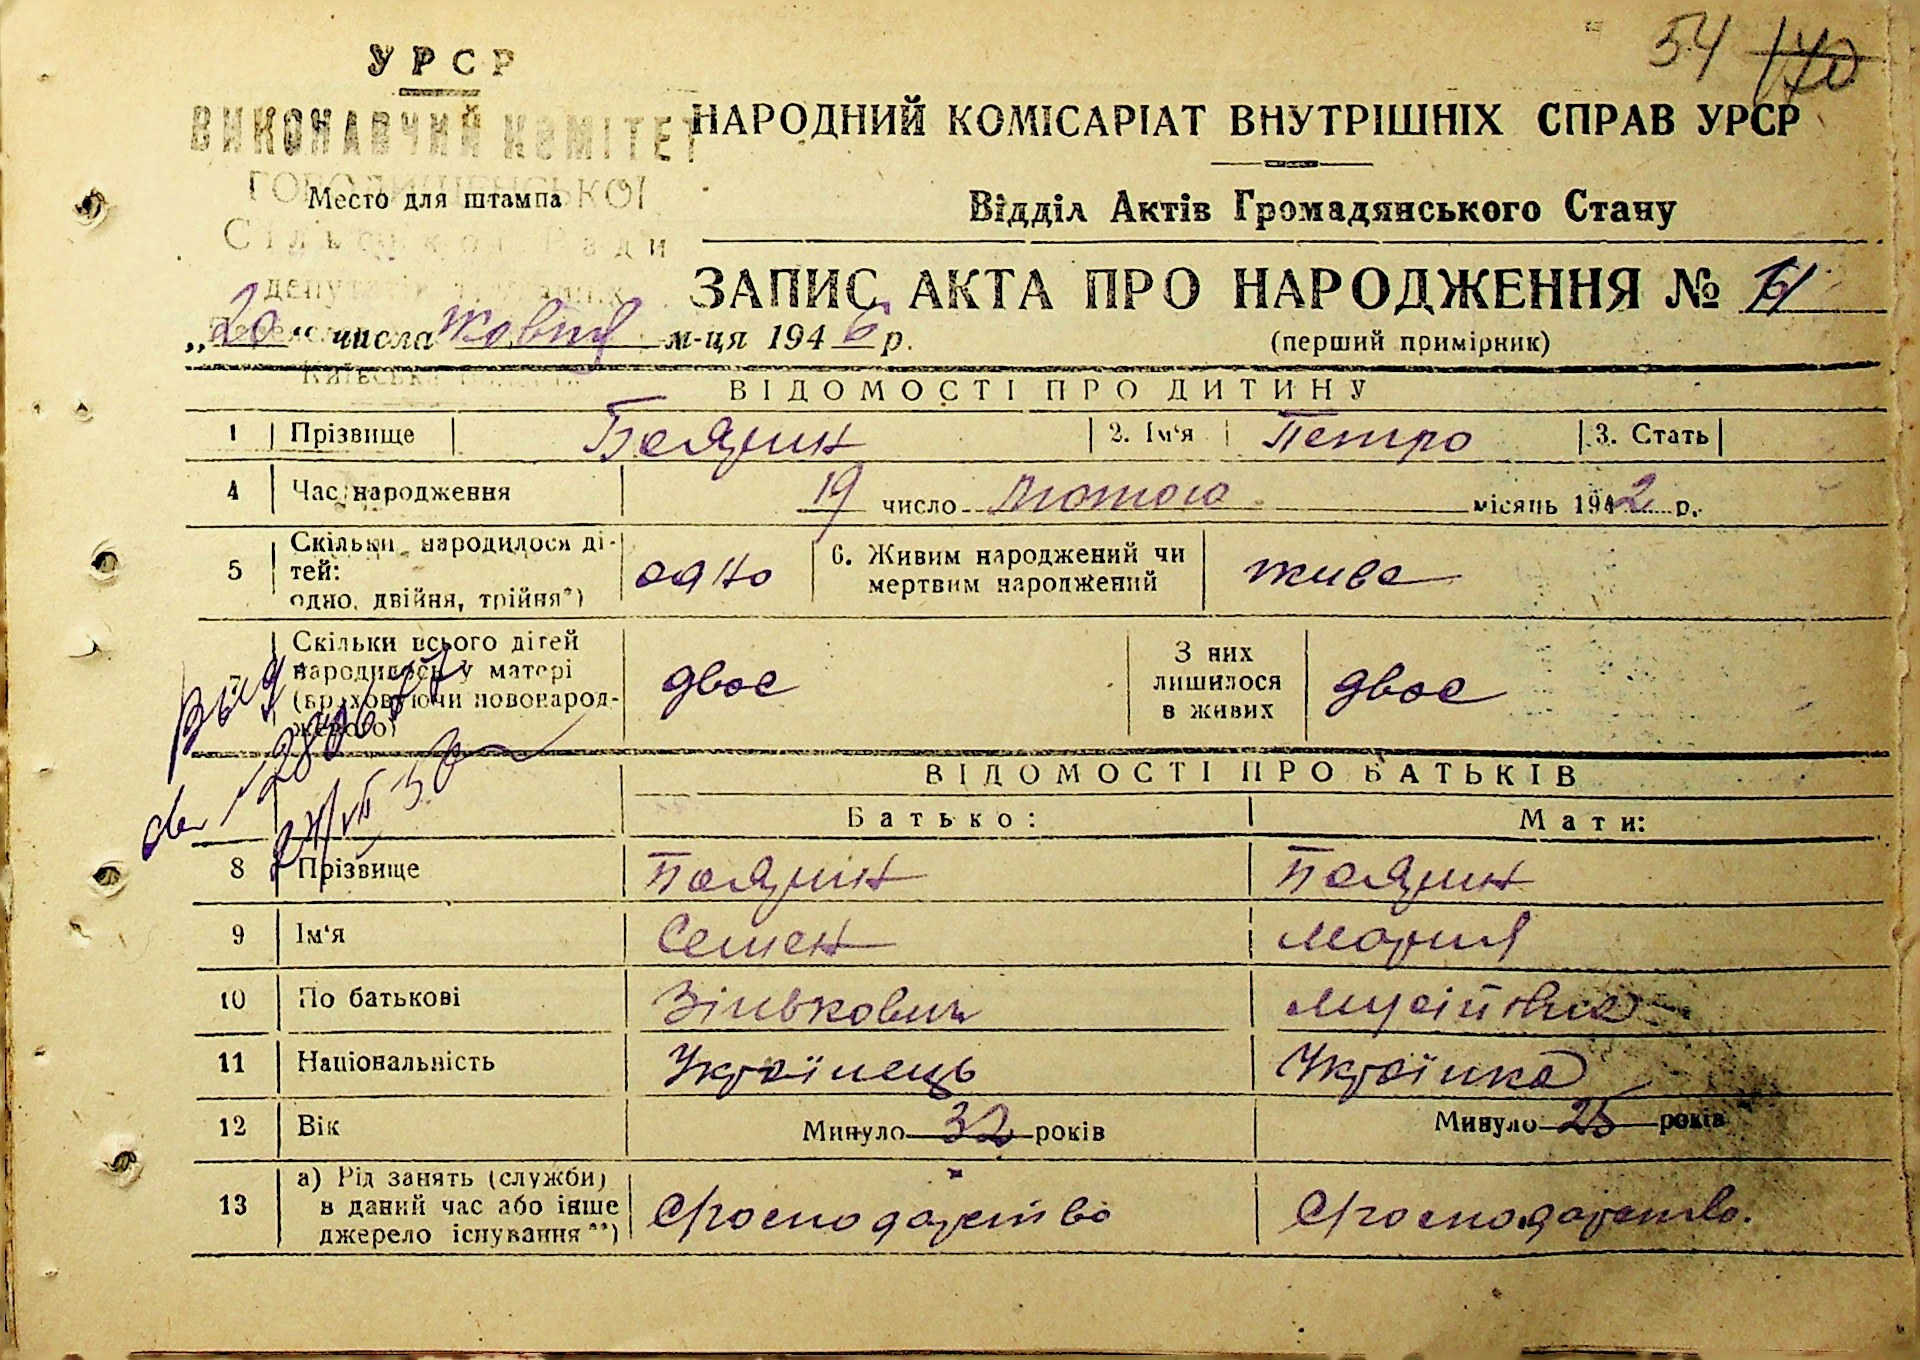 54 170
УРСР
ВИКОНАВЧИЙ КОМІТЕТ
НАРОДНИЙ КОМІСАРІАТ ВНУТРІШНІХ СПРАВ УРСР
ГОРОДИЩЕНСЬКОЇ
Место для штампа
Відділ Актів Громадянського Стану
Сільської Ради
депутатів
ЗАПИС АКТА ПРО НАРОДЖЕННЯ №
„20" числа жовтня м-ця 1946 р.
(перший примірник)
ВІДОМОСТІ ПРО ДИТИНУ
1 Прізвище Боярин 2. Ім'я Петро 3. Стать
4 Час народження 19 число Лютого місяць 1942 р.
5 Скільки народилося дітей: одно, двійня, трійня*) одно 6. Живим народжений чи мертвим народжений живе
Скільки всього дітей народилось у матері (враховуючи новонародженого) двоє З них лишилося в живих двоє
ВІДОМОСТІ ПРО БАТЬКІВ
Батько: Мати:
8 Прізвище Боярин Боярин
9 Ім'я Семен Мория
10 По батькові Зінькович Мусіївна
11 Національність Українець Українка
12 Вік Минуло 32 років Минуло 25 років
13 а) Рід занять (служби) в даний час або інше джерело існування**) Сгосподарство Сгосподарство.